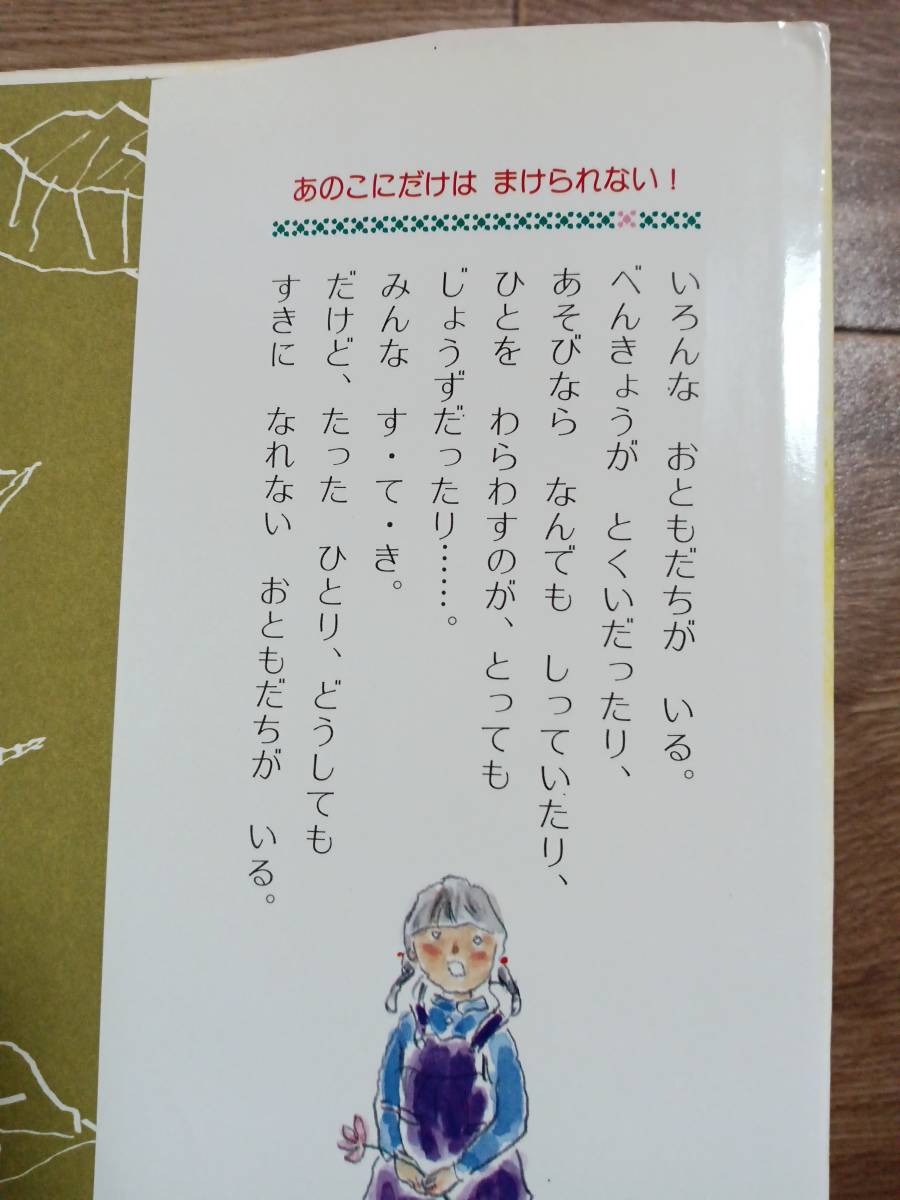 あのこにだけは まけられない！
いろんな おともだちが いる。
べんきょうが とくいだったり、
あそびなら なんでも しっていたり、
ひとを わらわすのが、とっても
じょうずだったり……。
みんな す・て・き。
だけど、たった ひとり、どうしても
すきに なれない おともだちが いる。